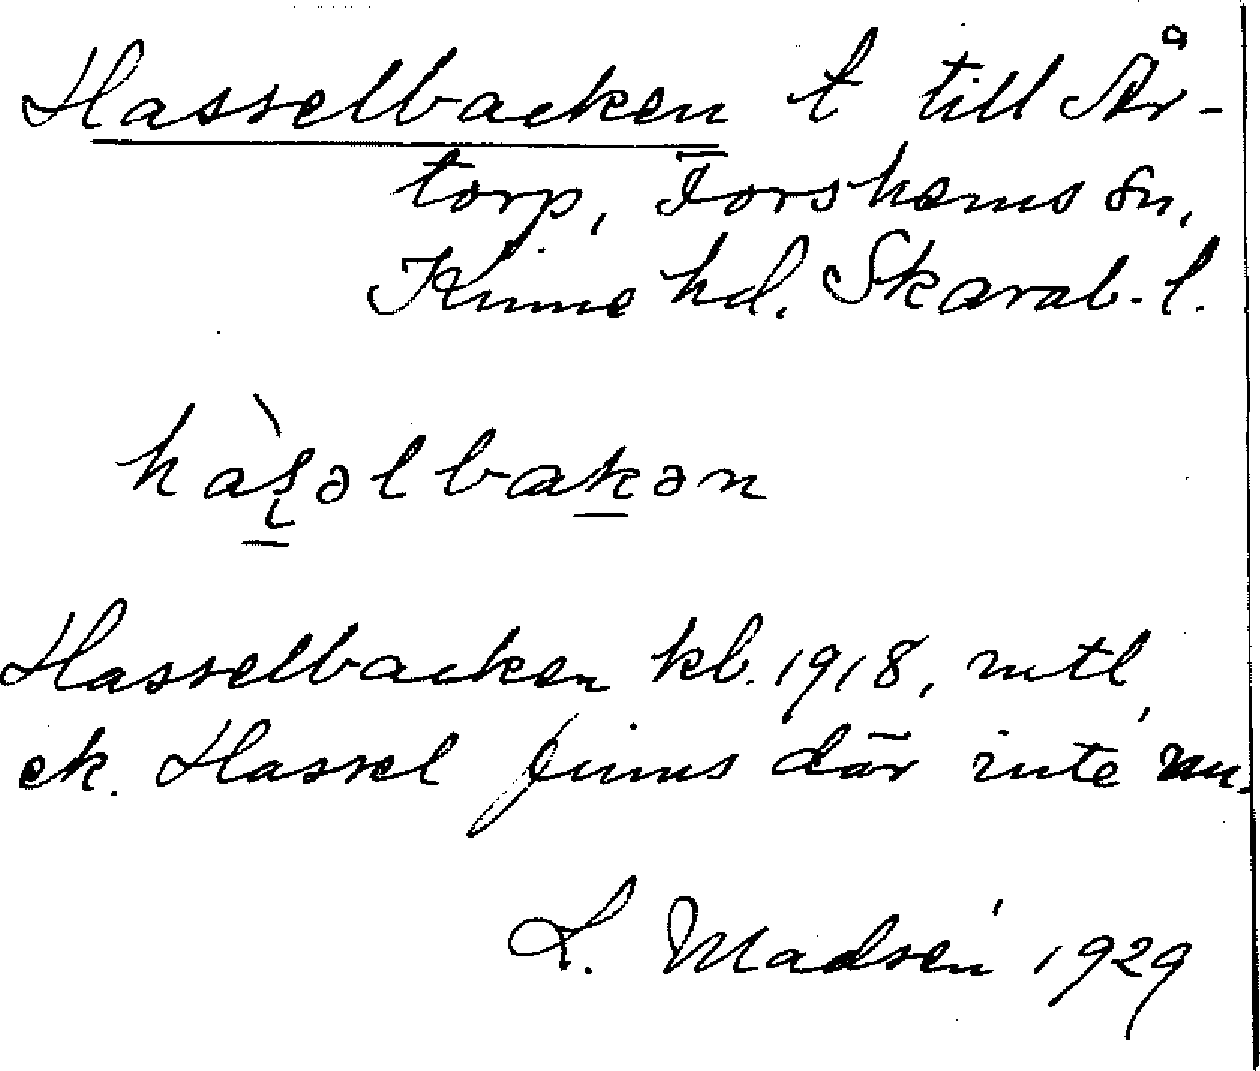 Hasselbacken t till År-
torp, Forshems sn,
Kinne hd. Skarab. l.
hàsəlbakən
Hasselbacken kb. 1918, mtl,
ek. Hassel finns där inte nu.
L. Madsén 1929